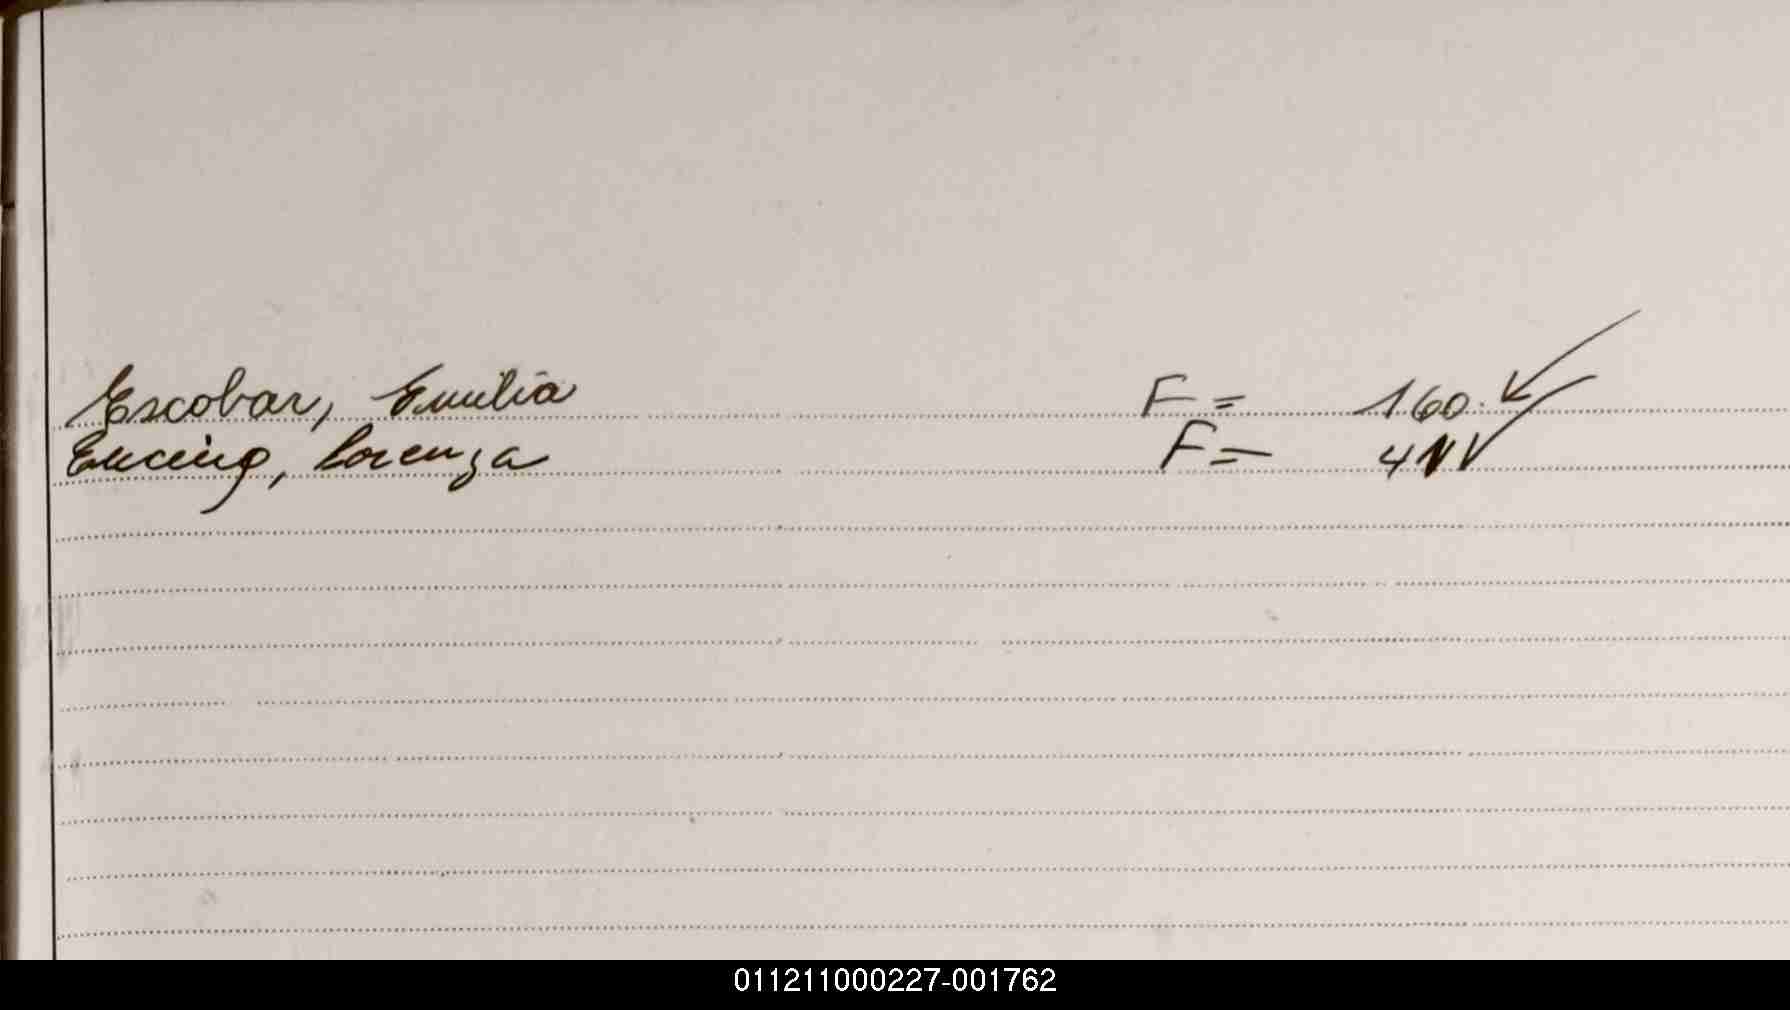 Escobar, Emilia F = 160.
Lorenza F =
011211000227-001762